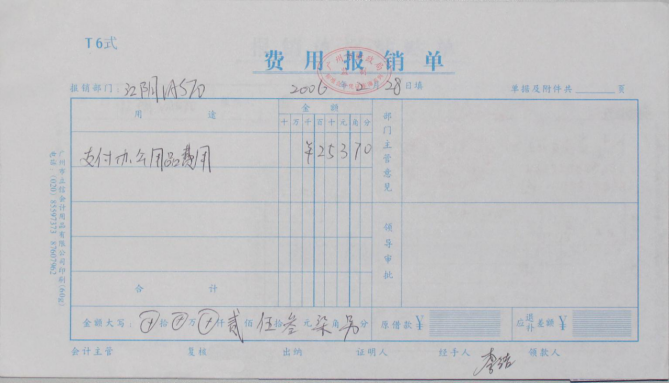 T6式
费用报销单
报销部门: 江阴IASTD 2006年2月28日填 单据及附件共 页
用途 金额
十万千百十元角分
支付办公用品费用 ¥25370
部门主管意见
领导审批
合计
金额大写: 拾 万 仟 贰佰 伍拾 叁元 柒角 另分 原借款 ¥ 应退补差额 ¥
会计主管 复核 出纳 证明人 经手人 领款人
广州市立信会计用品有限公司印制(60g)